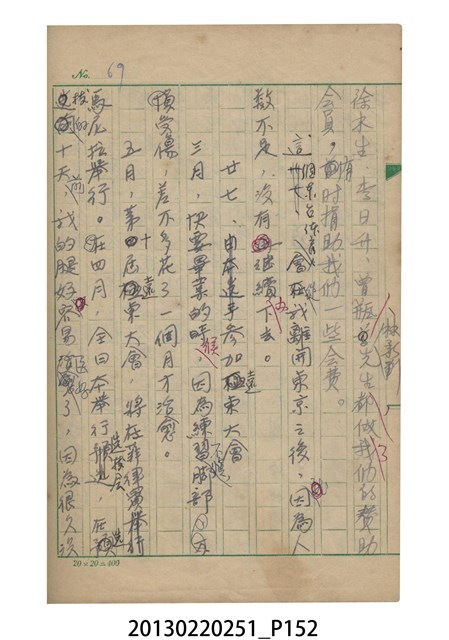 No. 69
徐木生、李日升、曾瓶山先生都做我們的贊助
会員，有時捐助我們一些会費。
這個東台体育会在我離開東京之後，因為人
数不足，沒有继續下去。
廿七、由本選手参加遠東大會
三月，快要畢業的時候，因為練習，腳部不慎
受傷，差不多花了一個月才治愈。
五月，第十屆遠東大會，將在菲律賓舉行
馬尼拉舉行。在四月，全日本舉行預選，在預選
的十天前，我的腿好容易醫好了，因為很久沒
20×20=400
20130220251_P152